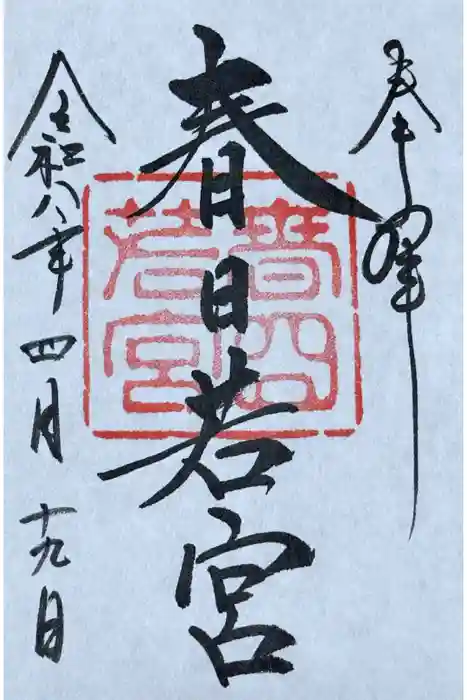 奉拝
春日若宮
春日若宮
令和八年四月十九日